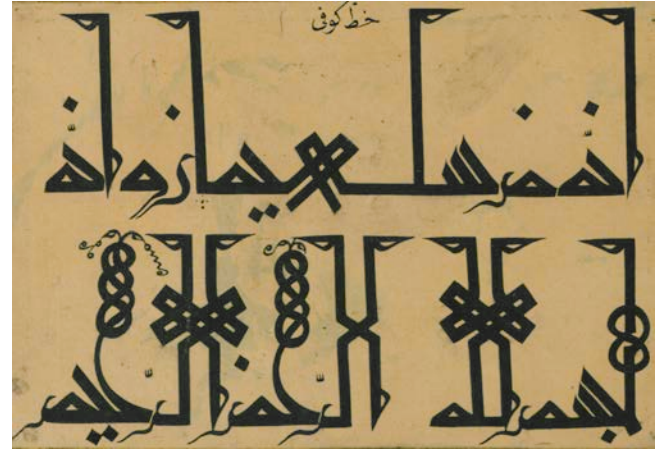 خط كوفى
انه من سليمان وانه
بسم الله الرحمن الرحيم